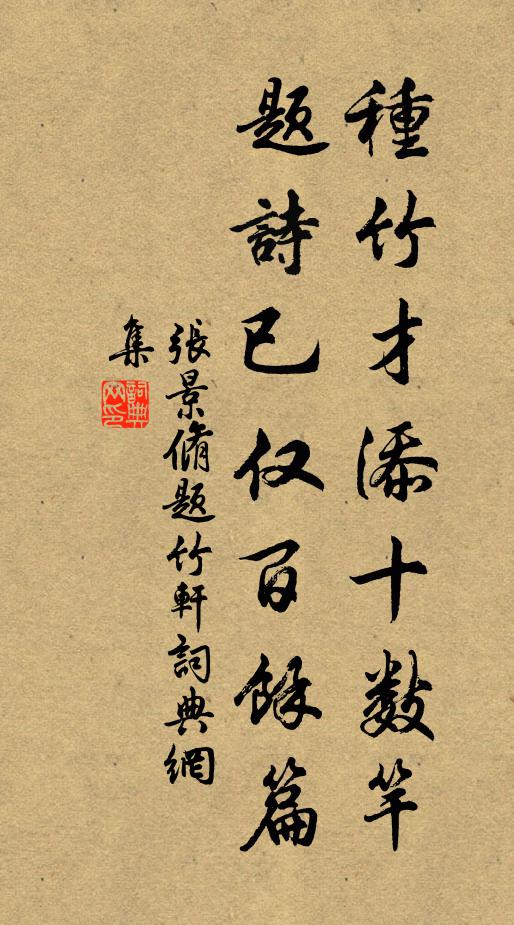 種竹才添十數竿
題詩已仅百餘篇
張景脩題竹軒詞典網
集
詞典網印